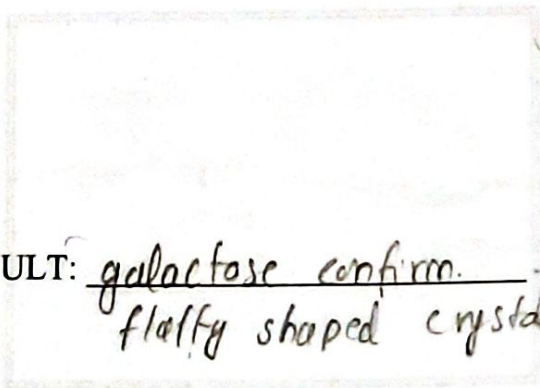 ULT: galactose confirm.
flaffy shaped crysta